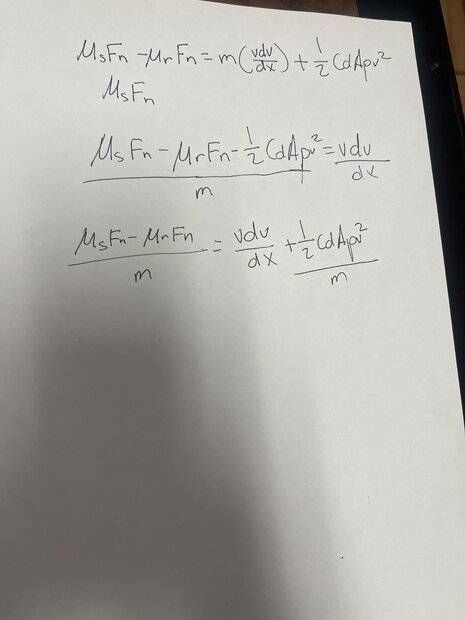 μsFn - μrFn = m(vdv/dx) + 1/2 CdApv²
μsFn
μsFn - μrFn - 1/2 CdApv² / m = vdv/dx
μsFn - μrFn / m = vdv/dx + 1/2 CdApv² / m